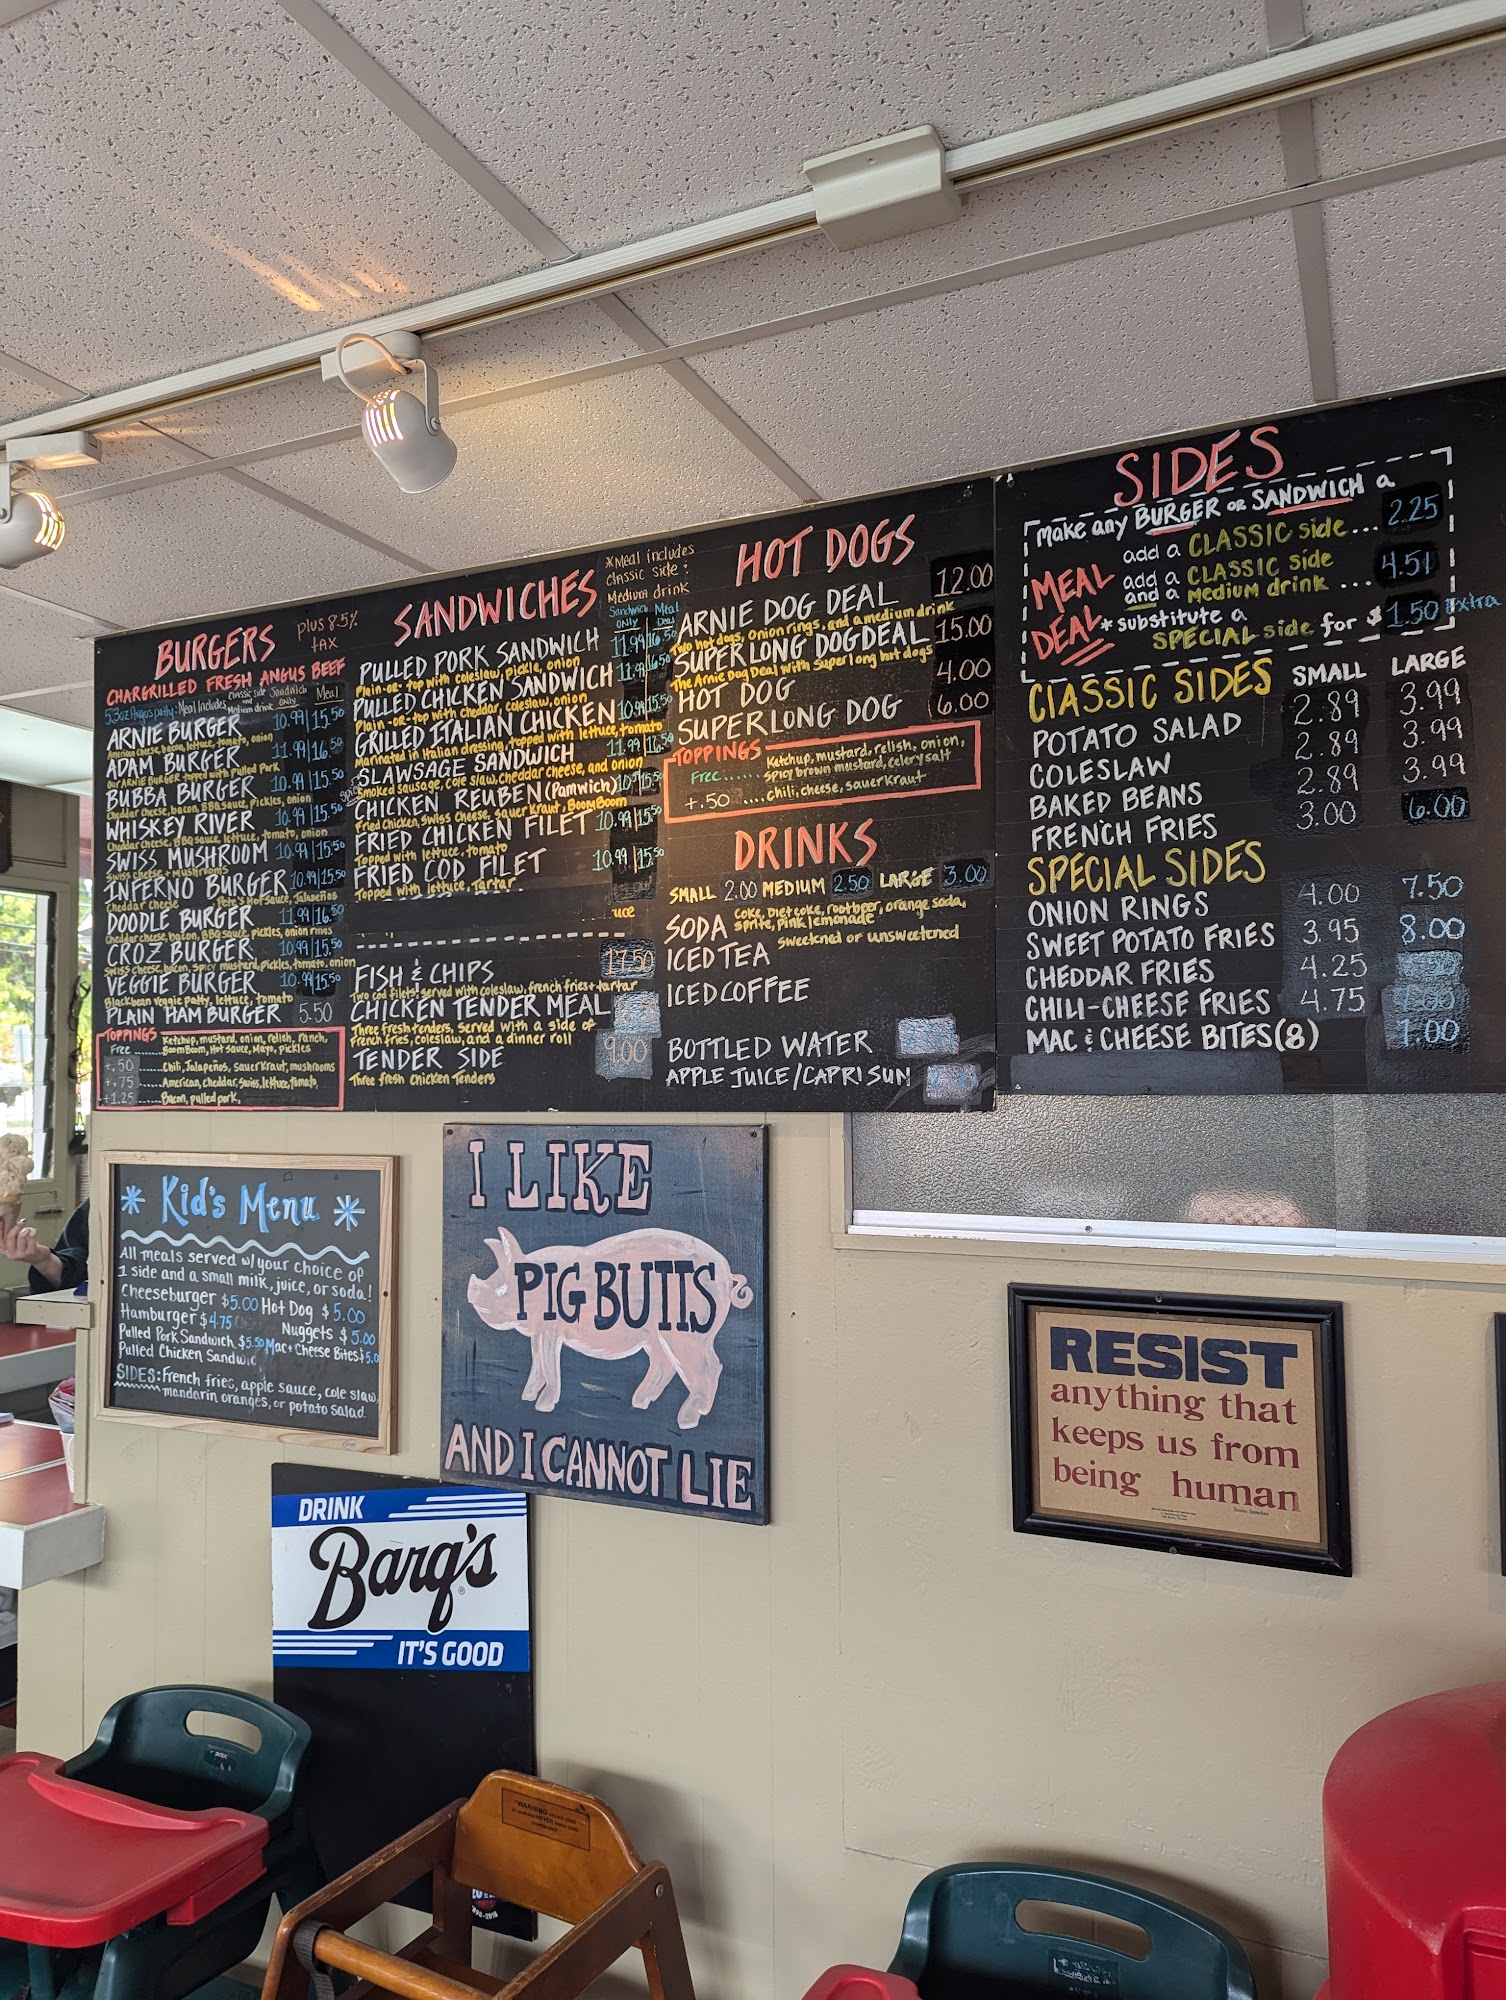 BURGERS
plus 8.5%
tax
CHARGRILLED FRESH ANGUS BEEF
5.3oz Angus patty: Meal Includes classic side and Medium drink
Sandwich ONLY Meal
ARNIE BURGER 10.99|15.50
American cheese, bacon, lettuce, tomato, onion
ADAM BURGER 11.99|16.50
Our ARNIE BURGER topped with Pulled Pork
BUBBA BURGER 10.99|15.50
Cheddar cheese, bacon, BBQ sauce, pickles, onion
WHISKEY RIVER 10.99|15.50
Cheddar cheese, BBQ sauce, lettuce, tomato, onion
SWISS MUSHROOM 10.99|15.50
Swiss cheese + Mushrooms
INFERNO BURGER 10.99|15.50
Cheddar cheese Pete's Hot Sauce, Jalapeños
DOODLE BURGER 11.99|16.50
Cheddar cheese, bacon, BBQ sauce, pickles, onion rings
CROZ BURGER 10.99|15.50
Swiss cheese, bacon, spicy mustard, pickles, tomato, onion
VEGGIE BURGER 10.99|15.50
Blackbean veggie patty, lettuce, tomato
PLAIN HAM BURGER 5.50
TOPPINGS
Free ...... Ketchup, mustard, onion, relish, ranch,
BoomBoom, Hot sauce, Mayo, pickles
+.50 ......Chili, Jalapeños, sauerkraut, mushrooms
+.75 ......American, cheddar, swiss, lettuce, tomato,
+1.25 ......Bacon, pulled pork,
SANDWICHES
*Meal includes
classic side &
Medium drink
Sandwich ONLY Meal Deal
PULLED PORK SANDWICH 11.99|16.50
Plain-or-top with coleslaw, pickle, onion
PULLED CHICKEN SANDWICH 11.99|16.50
Plain-or-top with cheddar, coleslaw, onion
GRILLED ITALIAN CHICKEN 10.99|15.50
Marinated in Italian dressing, topped with lettuce, tomato
SLAWSAGE SANDWICH 11.99|16.50
Smoked sausage, cole slaw, cheddar cheese, and onion
CHICKEN REUBEN (Pamwich) 10.99|15.50
Fried Chicken, Swiss Cheese, sauer kraut, BoomBoom
FRIED CHICKEN FILET 10.99|15.50
Topped with lettuce, tomato
FRIED COD FILET 10.99|15.50
Topped with lettuce, tartar
uce
FISH & CHIPS 17.50
Two cod filets, served with coleslaw, french fries + tartar
CHICKEN TENDER MEAL
Three fresh tenders, served with a side of
french fries, coleslaw, and a dinner roll
TENDER SIDE 9.00
Three fresh chicken tenders
HOT DOGS
ARNIE DOG DEAL 12.00
Two hot dogs, onion rings, and a medium drink
SUPERLONG DOG DEAL 15.00
The Arnie Dog Deal with Super long hot dogs
HOT DOG 4.00
SUPERLONG DOG 6.00
TOPPINGS
Free...... Ketchup, mustard, relish, onion,
spicy brown mustard, celery salt
+.50 ....chili, cheese, sauerkraut
DRINKS
SMALL 2.00 MEDIUM 2.50 LARGE 3.00
SODA Coke, Diet coke, rootbeer, orange soda,
sprite, pink lemonade
ICED TEA sweetened or unsweetened
ICED COFFEE
BOTTLED WATER
APPLE JUICE/CAPRI SUN
SIDES
Make any BURGER or SANDWICH a
MEAL DEAL
add a CLASSIC side... 2.25
add a CLASSIC side
and a Medium drink ... 4.51
*substitute a
SPECIAL side for $ 1.50 Extra
CLASSIC SIDES SMALL LARGE
POTATO SALAD 2.89 3.99
COLESLAW 2.89 3.99
BAKED BEANS 2.89 3.99
FRENCH FRIES 3.00 6.00
SPECIAL SIDES
ONION RINGS 4.00 7.50
SWEET POTATO FRIES 3.95 8.00
CHEDDAR FRIES 4.25
CHILI-CHEESE FRIES 4.75
MAC & CHEESE BITES(8) 7.00
Kid's Menu
All meals served w/your choice of
1 side and a small milk, juice, or soda!
Cheeseburger $5.00 Hot Dog $5.00
Hamburger $4.75 Nuggets $5.00
Pulled Pork Sandwich $5.50 Mac + Cheese Bites $5.0
Pulled Chicken Sandwic
SIDES: French fries, apple sauce, cole slaw,
mandarin oranges, or potato salad.
I LIKE
PIG BUTTS
AND I CANNOT LIE
RESIST
anything that
keeps us from
being human
DRINK
Barq's
IT'S GOOD
"WARNING